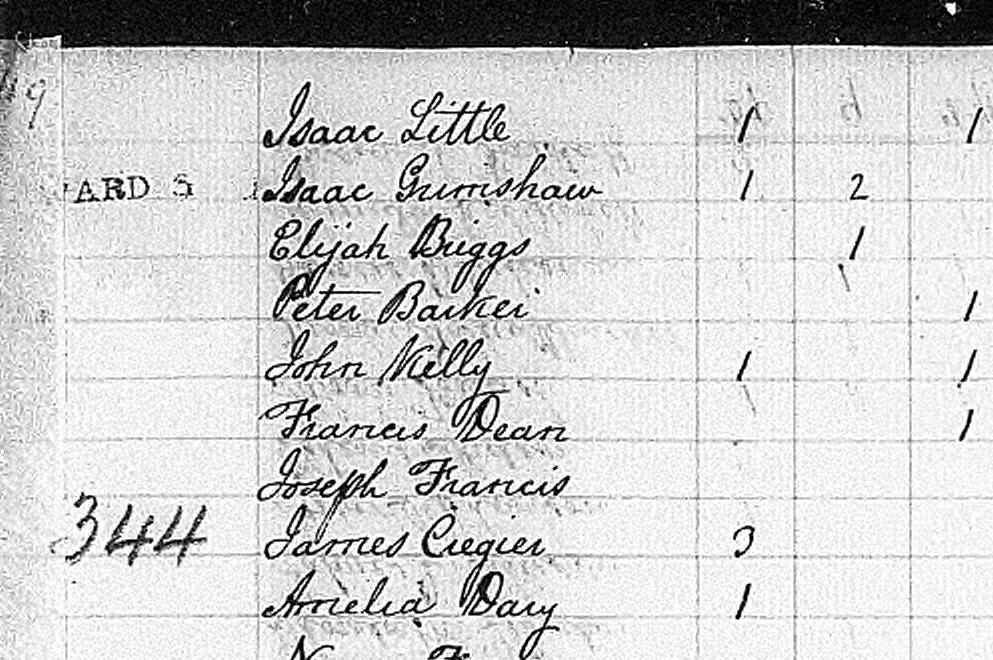 Isaac Little 1 1
ARD 5 Isaac Grimshaw 1 2
Elijah Briggs 1
Peter Barker 1
John Kelly 1 1
Francis Dean 1
Joseph Francis
344 James Cregier 3
Amelia Dary 1